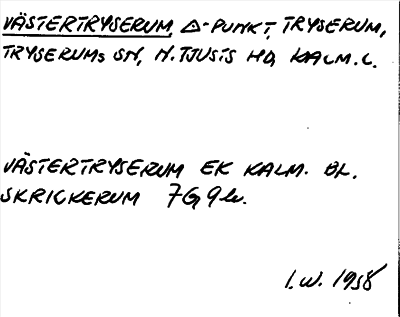 VÄSTERTRYSERUM, △-PUNKT, TRYSERUM,
TRYSERUMs SN, N. TJUSTS HD, KALM. L.
VÄSTERTRYSERUM EK KALM. BL.
SKRICKERUM 7G9b.
I.W. 1958